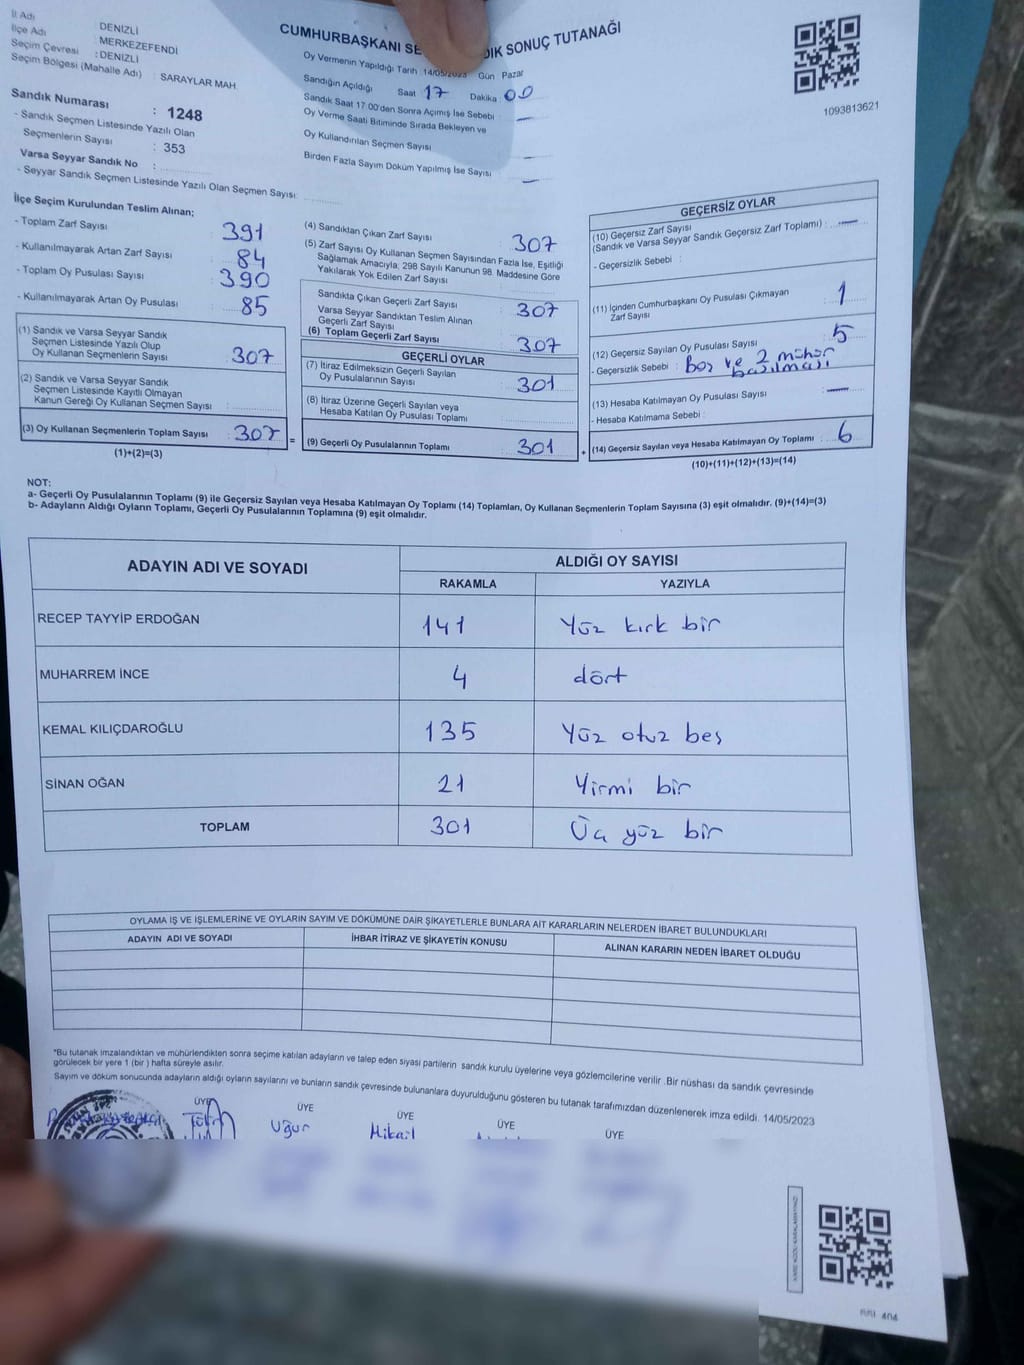 İl Adı DENİZLİ
İlçe Adı MERKEZEFENDİ
Seçim Çevresi : DENİZLİ
Seçim Bölgesi (Mahalle Adı) : SARAYLAR MAH
Sandık Numarası : 1248
- Sandık Seçmen Listesinde Yazılı Olan
Seçmenlerin Sayısı : 353
Varsa Seyyar Sandık No :
- Seyyar Sandık Seçmen Listesinde Yazılı Olan Seçmen Sayısı:
CUMHURBAŞKANI SE DIK SONUÇ TUTANAĞI
Oy Vermenin Yapıldığı Tarih 14/05/2023 Gün Pazar
Sandığın Açıldığı Saat 17 Dakika 00
Sandık Saat 17:00'den Sonra Açımış İse Sebebi : —
Oy Verme Saati Bitiminde Sırada Bekleyen ve
Oy Kullandırılan Seçmen Sayısı —
Birden Fazla Sayım Döküm Yapılmış İse Sayısı —
1093813621
İlçe Seçim Kurulundan Teslim Alınan;
- Toplam Zarf Sayısı : 391
- Kullanılmayarak Artan Zarf Sayısı : 84
- Toplam Oy Pusulası Sayısı : 390
- Kullanılmayarak Artan Oy Pusulası : 85
(1) Sandık ve Varsa Seyyar Sandık
Seçmen Listesinde Yazılı Olup
Oy Kullanan Seçmenlerin Sayısı : 307
(2) Sandık ve Varsa Seyyar Sandık
Seçmen Listesinde Kayıtlı Olmayan
Kanun Gereği Oy Kullanan Seçmen Sayısı :
(3) Oy Kullanan Seçmenlerin Toplam Sayısı : 307 =
(1)+(2)=(3)
(4) Sandıktan Çıkan Zarf Sayısı : 307
(5) Zarf Sayısı Oy Kullanan Seçmen Sayısından Fazla İse, Eşitliği
Sağlamak Amacıyla; 298 Sayılı Kanunun 98. Maddesine Göre
Yakılarak Yok Edilen Zarf Sayısı :
Sandıkta Çıkan Geçerli Zarf Sayısı : 307
Varsa Seyyar Sandıktan Teslim Alınan
Geçerli Zarf Sayısı :
(6) Toplam Geçerli Zarf Sayısı : 307
GEÇERLİ OYLAR
(7) İtiraz Edilmeksizin Geçerli Sayılan
Oy Pusulalarının Sayısı : 301
(8) İtiraz Üzerine Geçerli Sayılan veya
Hesaba Katılan Oy Pusulası Toplamı :
(9) Geçerli Oy Pusulalarının Toplamı : 301 +
GEÇERSİZ OYLAR
(10) Geçersiz Zarf Sayısı
(Sandık ve Varsa Seyyar Sandık Geçersiz Zarf Toplamı) : —
- Geçersizlik Sebebi :
(11) İçinden Cumhurbaşkanı Oy Pusulası Çıkmayan
Zarf Sayısı : 1
(12) Geçersiz Sayılan Oy Pusulası Sayısı : 5
- Geçersizlik Sebebi : Boş ve 2 mühür
basılması
(13) Hesaba Katılmayan Oy Pusulası Sayısı : —
- Hesaba Katılmama Sebebi :
(14) Geçersiz Sayılan veya Hesaba Katılmayan Oy Toplamı : 6
(10)+(11)+(12)+(13)=(14)
NOT:
a- Geçerli Oy Pusulalarının Toplamı (9) ile Geçersiz Sayılan veya Hesaba Katılmayan Oy Toplamı (14) Toplamları, Oy Kullanan Seçmenlerin Toplam Sayısına (3) eşit olmalıdır. (9)+(14)=(3)
b- Adayların Aldığı Oyların Toplamı, Geçerli Oy Pusulalarının Toplamına (9) eşit olmalıdır.
ADAYIN ADI VE SOYADI
ALDIĞI OY SAYISI
RAKAMLA YAZIYLA
RECEP TAYYİP ERDOĞAN 141 Yüz kırk bir
MUHARREM İNCE 4 dört
KEMAL KILIÇDAROĞLU 135 Yüz otuz beş
SİNAN OĞAN 21 Yirmi bir
TOPLAM 301 Üç yüz bir
OYLAMA İŞ VE İŞLEMLERİNE VE OYLARIN SAYIM VE DÖKÜMÜNE DAİR ŞİKAYETLERLE BUNLARA AİT KARARLARIN NELERDEN İBARET BULUNDUKLARI
ADAYIN ADI VE SOYADI İHBAR İTİRAZ VE ŞİKAYETİN KONUSU ALINAN KARARIN NEDEN İBARET OLDUĞU
*Bu tutanak imzalandıktan ve mühürlendikten sonra seçime katılan adayların ve talep eden siyasi partilerin sandık kurulu üyelerine veya gözlemcilerine verilir. Bir nüshası da sandık çevresinde
görülecek bir yere 1 (bir) hafta süreyle asılır.
Sayım ve döküm sonucunda adayların aldığı oyların sayılarını ve bunların sandık çevresinde bulunanlara duyurulduğunu gösteren bu tutanak tarafımızdan düzenlenerek imza edildi. 14/05/2023
ÜYE ÜYE ÜYE ÜYE ÜYE
Uğur Mikail